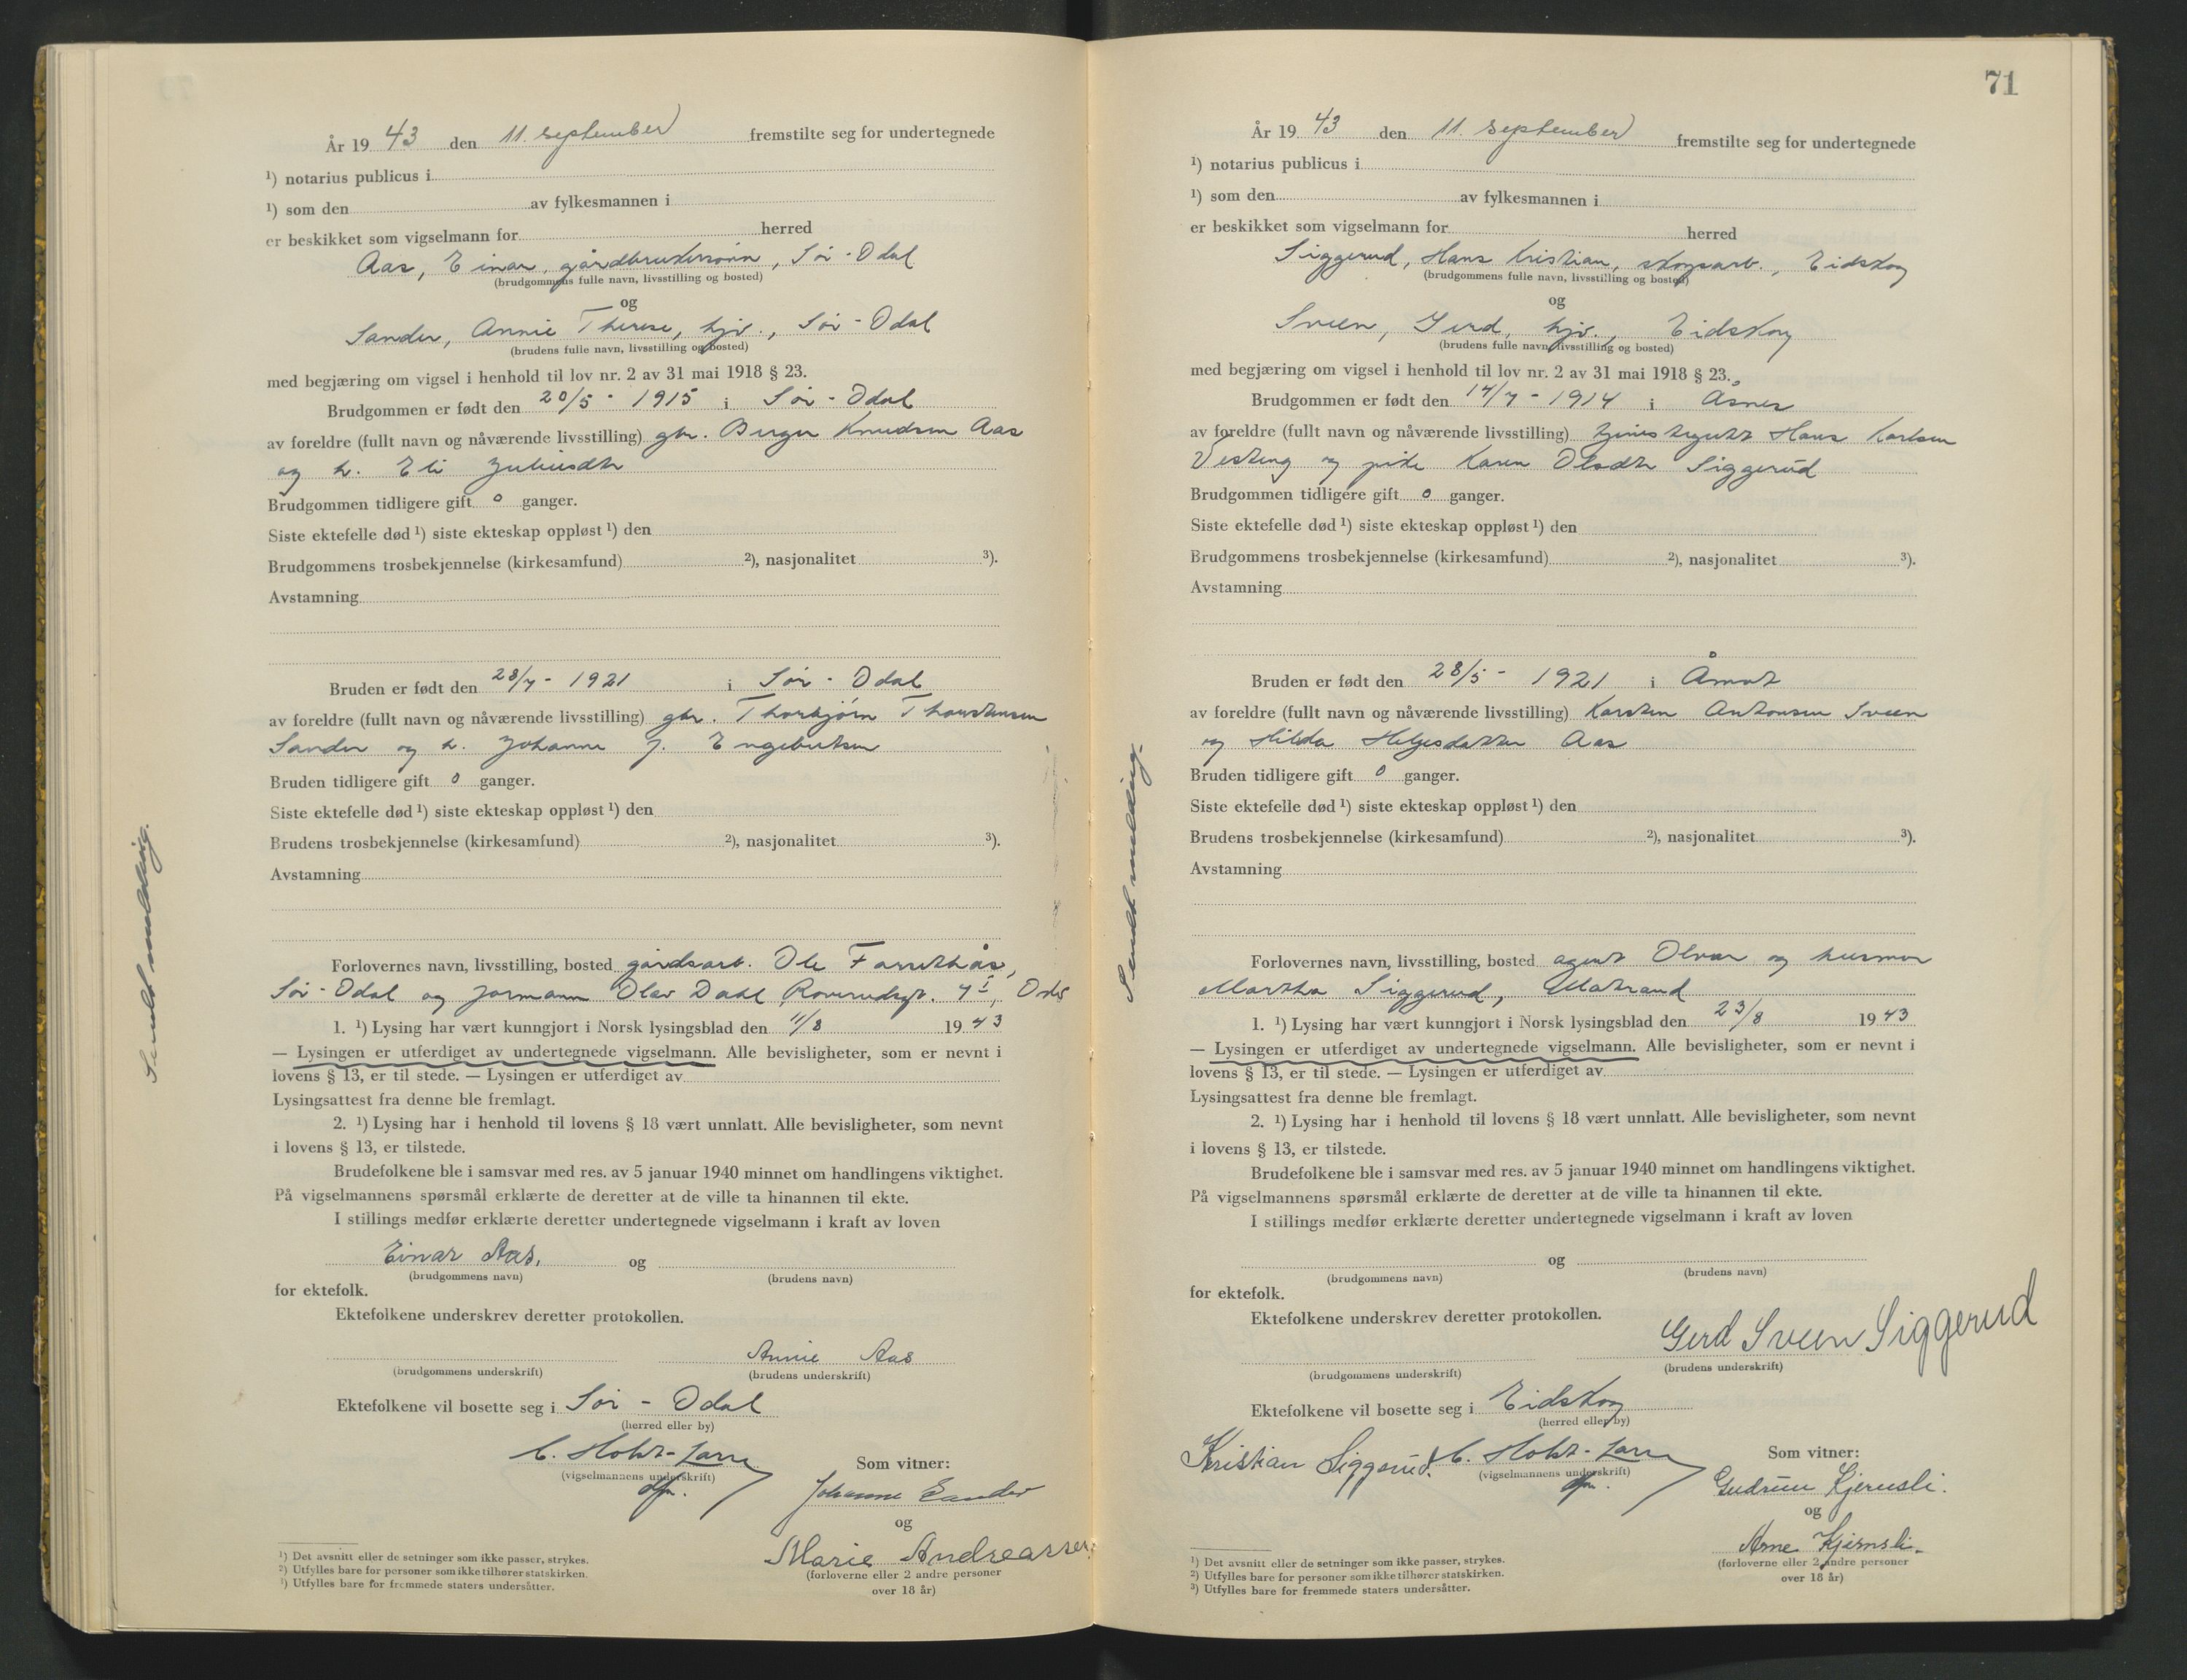 År 19 43 den 11. september fremstilte seg for undertegnede
¹) notarius publicus i
¹) som den av fylkesmannen i
er beskikket som vigselmann for herred
Aas, Einar, gårdbrukersønn, Sør-Odal
(brudgommens fulle navn, livsstilling og bosted)
og
Sander, Annie Therese, hjv., Sør-Odal
(brudens fulle navn, livsstilling og bosted)
med begjæring om vigsel i henhold til lov nr. 2 av 31 mai 1918 § 23.
Brudgommen er født den 20/5 - 1915 i Sør-Odal
av foreldre (fullt navn og nåværende livsstilling) gbr. Birger Knudsen Aas
og h. Eli Juliusdtr
Brudgommen tidligere gift 0 ganger.
Siste ektefelle død ¹) siste ekteskap oppløst ¹) den
Brudgommens trosbekjennelse (kirkesamfund) ²), nasjonalitet ³).
Avstamning
Bruden er født den 28/7 - 1921 i Sør-Odal
av foreldre (fullt navn og nåværende livsstilling) gbr. Thorbjørn Thorstensen
Sander og h. Johanne J. Engebretsen
Bruden tidligere gift 0 ganger.
Siste ektefelle død ¹) siste ekteskap oppløst ¹) den
Brudens trosbekjennelse (kirkesamfund) ²), nasjonalitet ³).
Avstamning
Forlovernes navn, livsstilling, bosted gårdsarb. Ole
Sør-Odal og formann Olav Dahl, Oslo
1. ¹) Lysing har vært kunngjort i Norsk lysingsblad den 11/8 19 43
— Lysingen er utferdiget av undertegnede vigselmann. Alle bevisligheter, som er nevnt i
lovens § 13, er til stede. — Lysingen er utferdiget av
Lysingsattest fra denne ble fremlagt.
2. ¹) Lysing har i henhold til lovens § 18 vært unnlatt. Alle bevisligheter, som nevnt
i lovens § 13, er tilstede.
Brudefolkene ble i samsvar med res. av 5 januar 1940 minnet om handlingens viktighet.
På vigselmannens spørsmål erklærte de deretter at de ville ta hinannen til ekte.
I stillings medfør erklærte deretter undertegnede vigselmann i kraft av loven
Einar Aas. og
(brudgommens navn) (brudens navn)
for ektefolk.
Ektefolkene underskrev deretter protokollen.
Annie Aas
(brudgommens underskrift) (brudens underskrift)
Ektefolkene vil bosette seg i Sør-Odal
(herred eller by)
C. Holst-Larsen
(vigselmannens underskrift)
dfm.
Som vitner:
Johanne Sander
og
Marie Andreassen
(forloverne eller 2 andre personer
over 18 år)
¹) Det avsnitt eller de setninger som ikke passer, strykes.
²) Utfylles bare for personer som ikke tilhører statskirken.
³) Utfylles bare for fremmede staters undersåtter.
Sendt melding.
71
År 19 43 den 11. september fremstilte seg for undertegnede
¹) notarius publicus i
¹) som den av fylkesmannen i
er beskikket som vigselmann for herred
Siggerud, Hans Kristian, skogsarb., Eidskog
(brudgommens fulle navn, livsstilling og bosted)
og
Sveen, Gerd, hjv., Eidskog
(brudens fulle navn, livsstilling og bosted)
med begjæring om vigsel i henhold til lov nr. 2 av 31 mai 1918 § 23.
Brudgommen er født den 17/7 - 1914 i Åsnes
av foreldre (fullt navn og nåværende livsstilling) tjenestegutt Hans Karlsen
Vesteng og pike Karen Olsdtr Siggerud
Brudgommen tidligere gift 0 ganger.
Siste ektefelle død ¹) siste ekteskap oppløst ¹) den
Brudgommens trosbekjennelse (kirkesamfund) ²), nasjonalitet ³).
Avstamning
Bruden er født den 28/5 - 1921 i Åmot
av foreldre (fullt navn og nåværende livsstilling) Karsten Antonsen Sveen
og Hilda Helgesdatter Aas
Bruden tidligere gift 0 ganger.
Siste ektefelle død ¹) siste ekteskap oppløst ¹) den
Brudens trosbekjennelse (kirkesamfund) ²), nasjonalitet ³).
Avstamning
Forlovernes navn, livsstilling, bosted agent Olvar og husmor
Martha Siggerud, Matrand
1. ¹) Lysing har vært kunngjort i Norsk lysingsblad den 23/8 19 43
— Lysingen er utferdiget av undertegnede vigselmann. Alle bevisligheter, som er nevnt i
lovens § 13, er til stede. — Lysingen er utferdiget av
Lysingsattest fra denne ble fremlagt.
2. ¹) Lysing har i henhold til lovens § 18 vært unnlatt. Alle bevisligheter, som nevnt
i lovens § 13, er tilstede.
Brudefolkene ble i samsvar med res. av 5 januar 1940 minnet om handlingens viktighet.
På vigselmannens spørsmål erklærte de deretter at de ville ta hinannen til ekte.
I stillings medfør erklærte deretter undertegnede vigselmann i kraft av loven
og
(brudgommens navn) (brudens navn)
for ektefolk.
Ektefolkene underskrev deretter protokollen.
Gerd Sveen Siggerud
(brudgommens underskrift) (brudens underskrift)
Ektefolkene vil bosette seg i Eidskog
(herred eller by)
Kristian Siggerud. C. Holst-Larsen
(vigselmannens underskrift)
dfm.
Som vitner:
Gudrun Kjernsli.
og
Arne Kjernsli.
(forloverne eller 2 andre personer
over 18 år)
¹) Det avsnitt eller de setninger som ikke passer, strykes.
²) Utfylles bare for personer som ikke tilhører statskirken.
³) Utfylles bare for fremmede staters undersåtter.
Sendt melding.